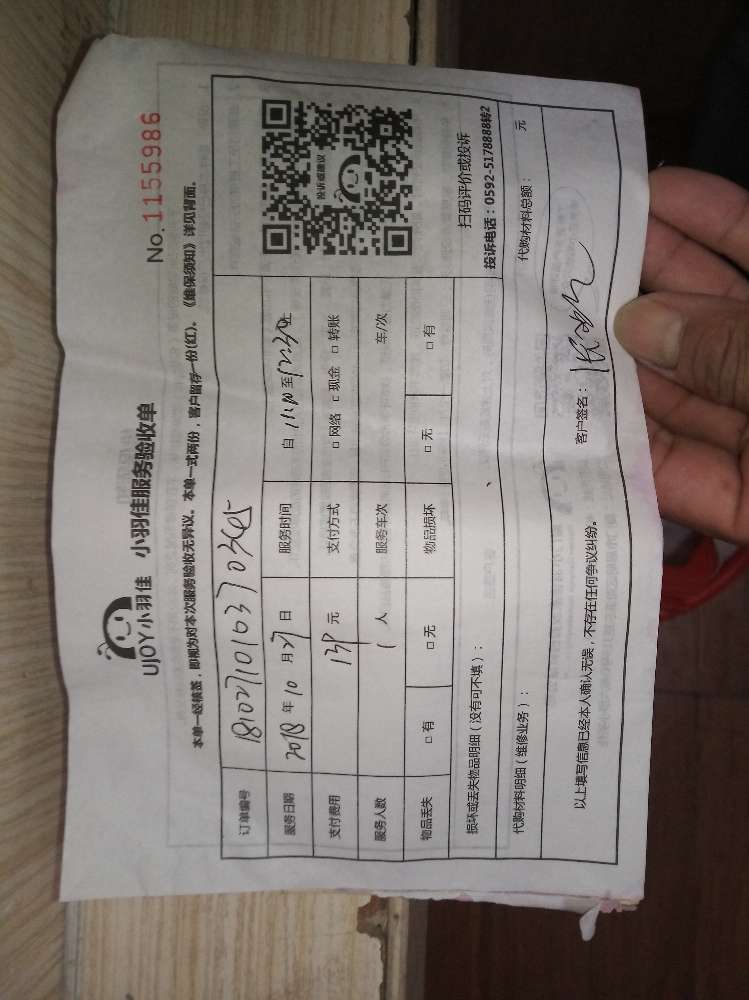 UJOY小羽佳 小羽佳服务验收单
No.1155986
本单一经核签，即视为对本次服务验收无异议。本单一式两份，客户留存一份(红)、《维保须知》详见背面。
订单编号
服务日期 2018 年 10 月 27 日 服务时间 自 11:00 至 12:30 止
支付费用 元 支付方式 □ 网络 □ 现金 □ 转账
服务人数 1 人 服务车次 车/次
物品丢失 □ 有 □ 无 物品损坏 □ 无 □ 有
投诉或建议
扫码评价或投诉
投诉电话：0592-5178888转2
损坏或丢失物品明细（没有可不填）：
代购材料明细（维修业务）： 代购材料总额： 元
以上填写信息已经本人确认无误，不存在任何争议纠纷。 客户签名：